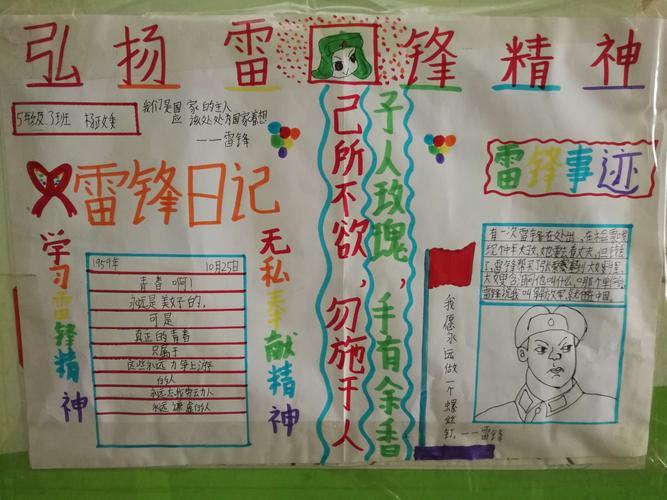 弘扬雷锋精神
5年级3班
我们是国家的主人
应该处处为国家着想
——雷锋
雷锋日记
学习雷锋精神
1959年 10月25日
青春啊!
永远是美好的,
可是
真正的青春
只属于
这些永远力争上游
的人
永远忘我劳动人
永远谦虚的人
无私奉献精神
己所不欲,勿施于人
予人玫瑰,手有余香
雷锋事迹
有一次雷锋在外出,在
我愿永远做一个螺丝钉.——雷锋